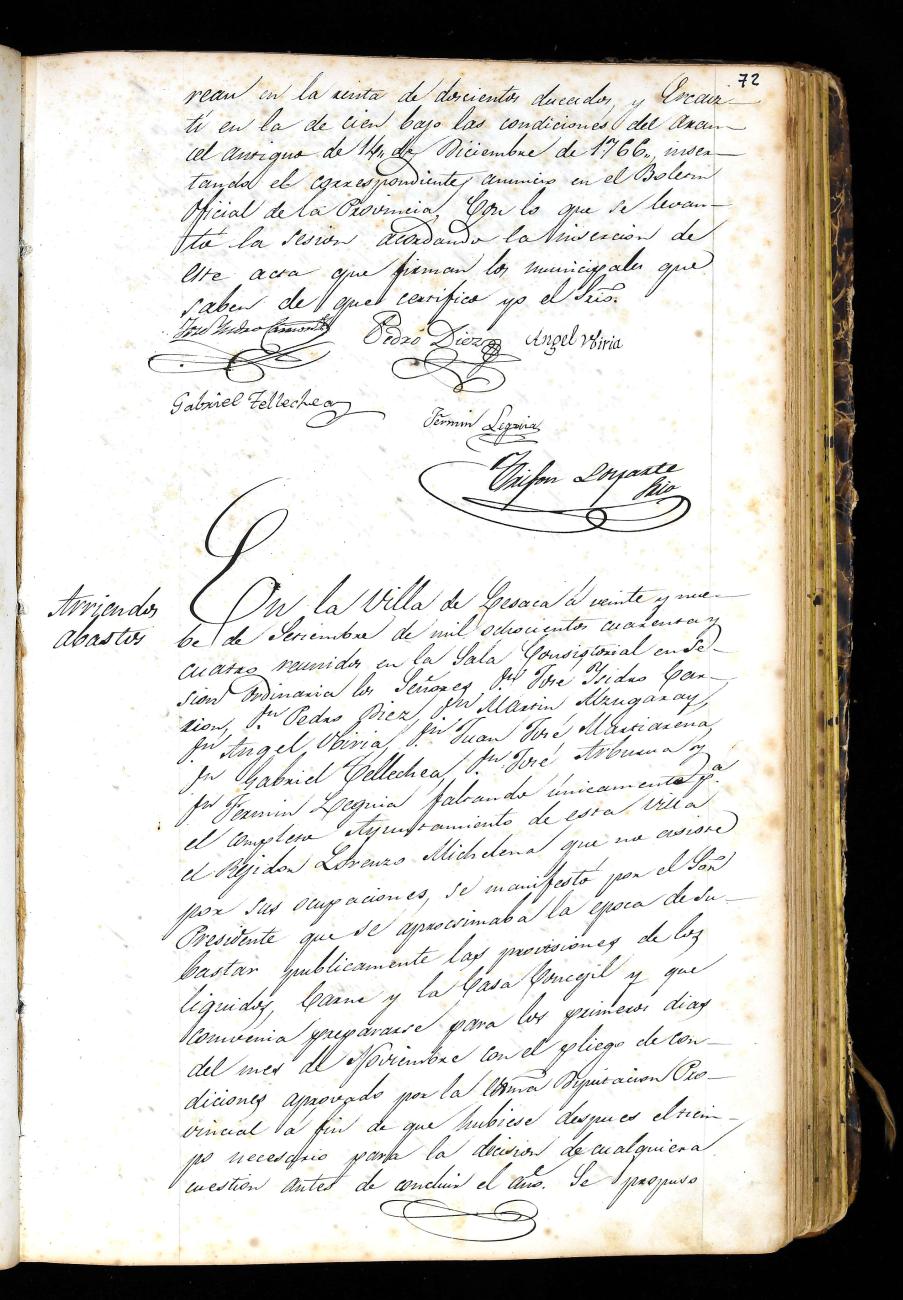 72
rean en la renta de doscientos ducados, y Ercaz-
ti en la de cien bajo las condiciones del aran-
cel antiguo de 14,, de Diciembre de 1766,, inser-
tando el correspondiente anuncio en el Boletin
Oficial de la Provincia, Con lo que se levan-
tó la sesion acordando la insercion de
este acta que firman los municipales que
saben de que certifico yo el Srio.
José Ysidro Carrion
Pedro Diez Angel Viria
Gabriel Tellechea
Fermin Leguia
Trifon Loyarte
Srio
Arriendos
abastos
En la Villa de Lesaca á veinte y nue-
be de Setiembre de mil ochocientos cuarenta y
cuatro reunidos en la Sala Consistorial en Se-
sion Ordinaria los Señores Dn. José Ysidro Car-
rion, Dn. Pedro Diez, Dn. Martin Alzugaray,
Dn. Angel Viria, Dn. Juan José Martiarena
Dn. Gabriel Tellechea, Dn. José y
Dn. Fermin Leguia faltando únicamente pa.
el completo Ayuntamiento de esta Villa
el Rejidor Lorenzo Michelena que no asiste
por sus ocupaciones, se manifestó por el Sor.
Presidente que se aprocsimaba la epoca de su-
bastar publicamente las provisiones de los
liquidos, Carne y la Casa Concejil y que
convenia prepararse para los primeros dias
del mes de Noviembre con el pliego de con-
diciones aprovado por la Diputacion Pro-
vincial á fin de que hubiese despues el tiem-
po necesario para la decision de cualquiera
cuestion antes de concluir el año. Se propuso